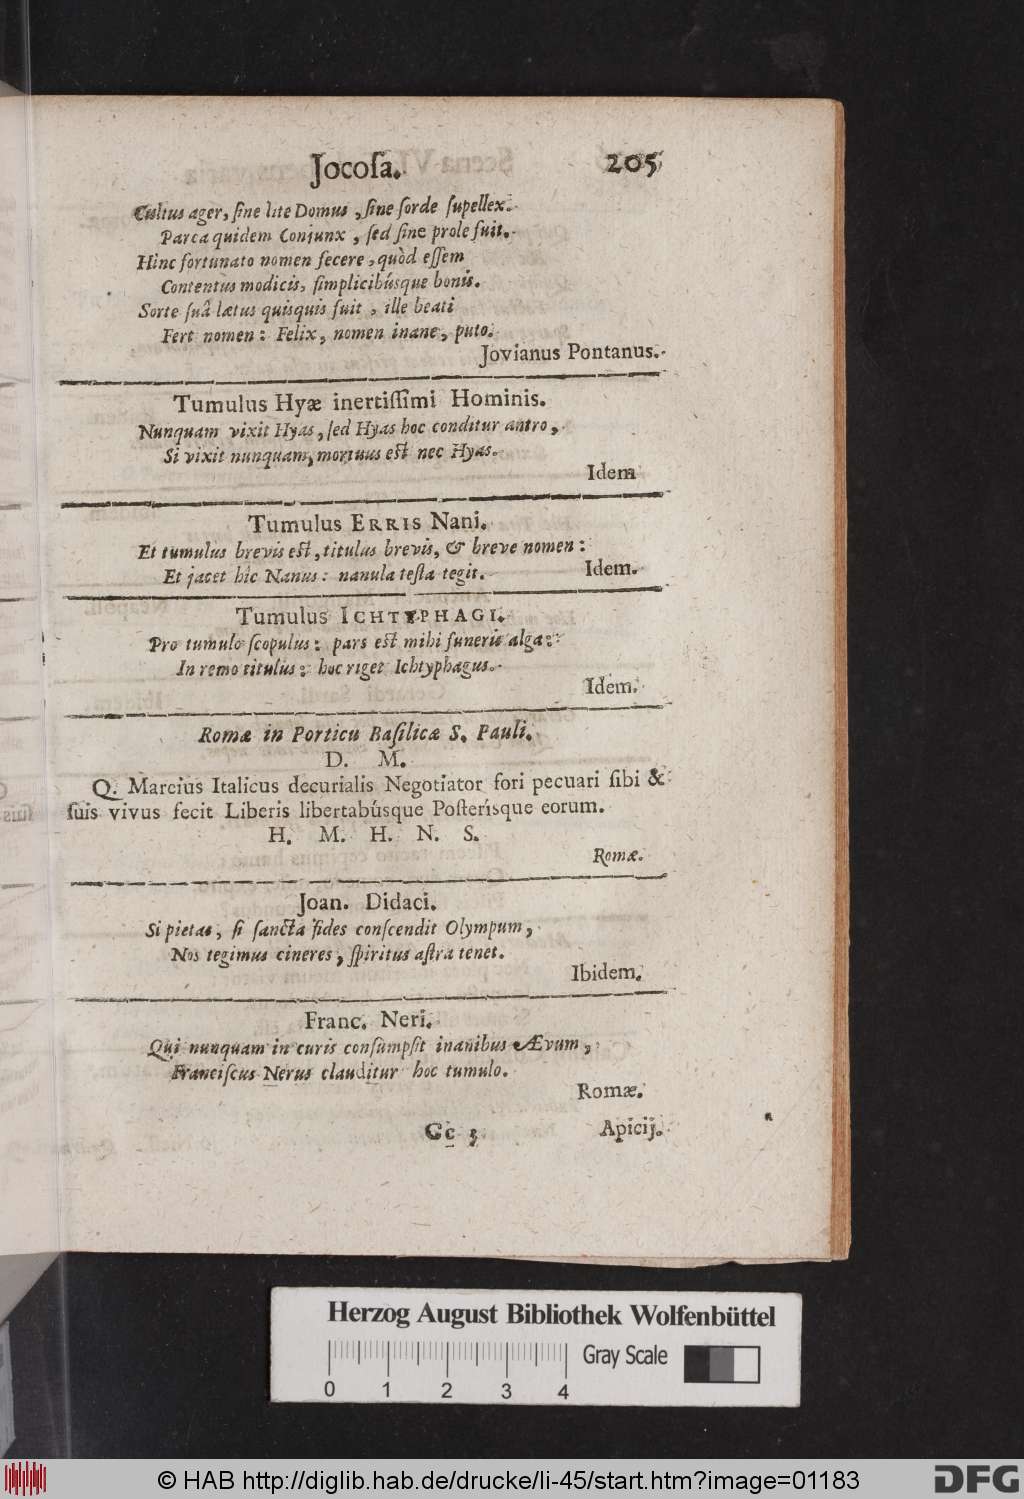 Jocoſa. 205
Cultus ager, ſine lite Domus, ſine ſorde ſupellex.
Parca quidem Conjunx, ſed ſine prole fuit.
Hinc fortunato nomen fecere, quòd eſſem
Contentus modicis, ſimplicibúsque bonis.
Sorte ſuâ lætus quisquis fuit, ille beati
Fert nomen: Felix, nomen inane, puto.
Jovianus Pontanus.
Tumulus Hyæ inertiſſimi Hominis.
Nunquam vixit Hyas, ſed Hyas hoc conditur antro,
Si vixit nunquam, mortuus eſt nec Hyas.
Idem
Tumulus ERRIS Nani.
Et tumulus brevis eſt, titulus brevis, & breve nomen:
Et jacet hîc Nanus: nanula teſta tegit. Idem.
Tumulus ICHTYPHAGI.
Pro tumulo ſcopulus: pars eſt mihi funeris alga:
In remo titulus: hoc riget Ichtyphagus.
Idem.
Romæ in Porticu Baſilicæ S. Pauli.
D. M.
Q. Marcius Italicus decurialis Negotiator fori pecuari ſibi &
ſuis vivus fecit Liberis libertabúsque Poſterísque eorum.
H. M. H. N. S.
Romæ.
Joan. Didaci.
Si pietas, ſi ſancta fides conſcendit Olympum,
Nos tegimus cineres, ſpiritus aſtra tenet.
Ibidem.
Franc. Neri.
Qui nunquam in curis conſumpſit inanibus Ævum,
Franciſcus Nerus clauditur hoc tumulo.
Romæ.
Cc 3 Apicij.
Herzog August Bibliothek Wolfenbüttel
0 1 2 3 4 Gray Scale
© HAB http://diglib.hab.de/drucke/li-45/start.htm?image=01183 DFG